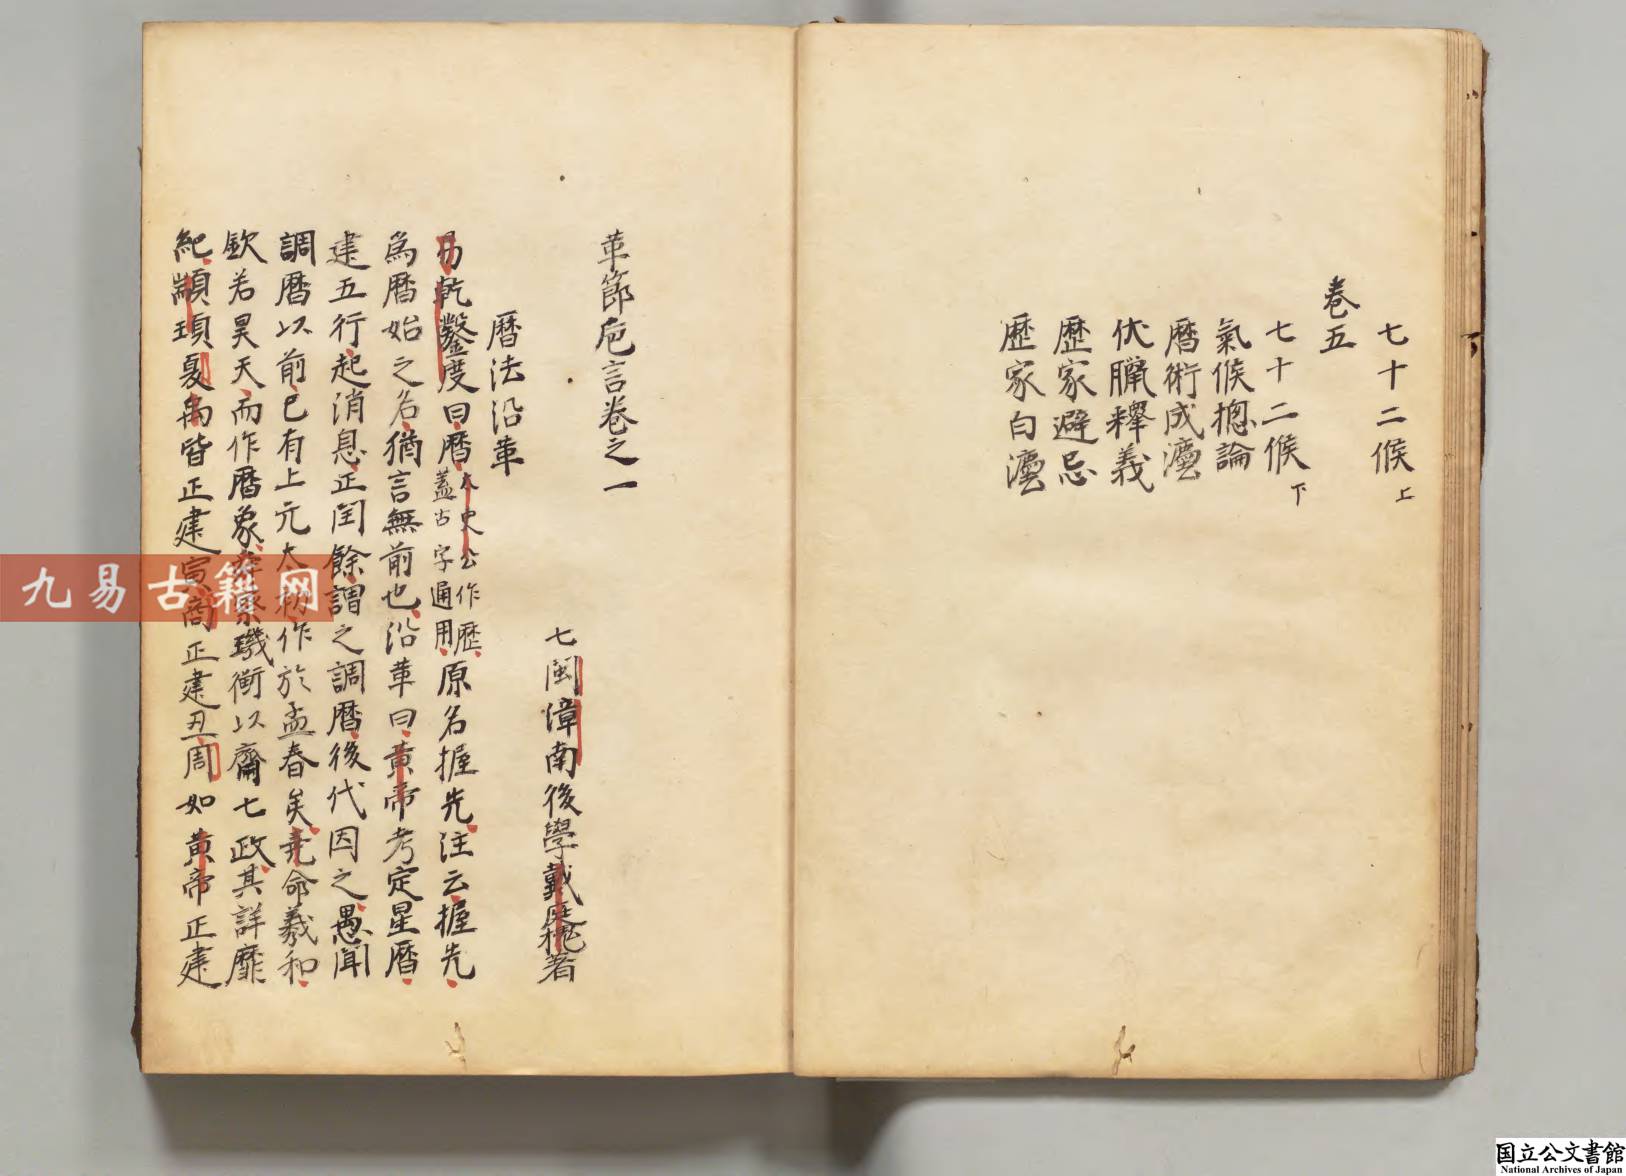 七十二候上
卷五
七十二候下
氣候摠論
曆術成灋
伏臘釋義
歷家避忌
歷家白灋
革節卮言卷之一
七閩漳南後學戴庭槐著
曆法沿革
易乾鑿度曰曆太史公作歷蓋古字通用原名握先注云握先
為曆始之名猶言無前也沿革曰黃帝考定星曆
建五行起消息正閏餘謂之調曆後代因之愚聞
調曆以前已有上元太初作於孟春矣堯命羲和
欽若昊天而作曆象璣衡以齊七政其詳靡
紀顓頊夏禹皆正建寅商正建丑周如黃帝正建
九易古籍网
国立公文書館
National Archives of Japan